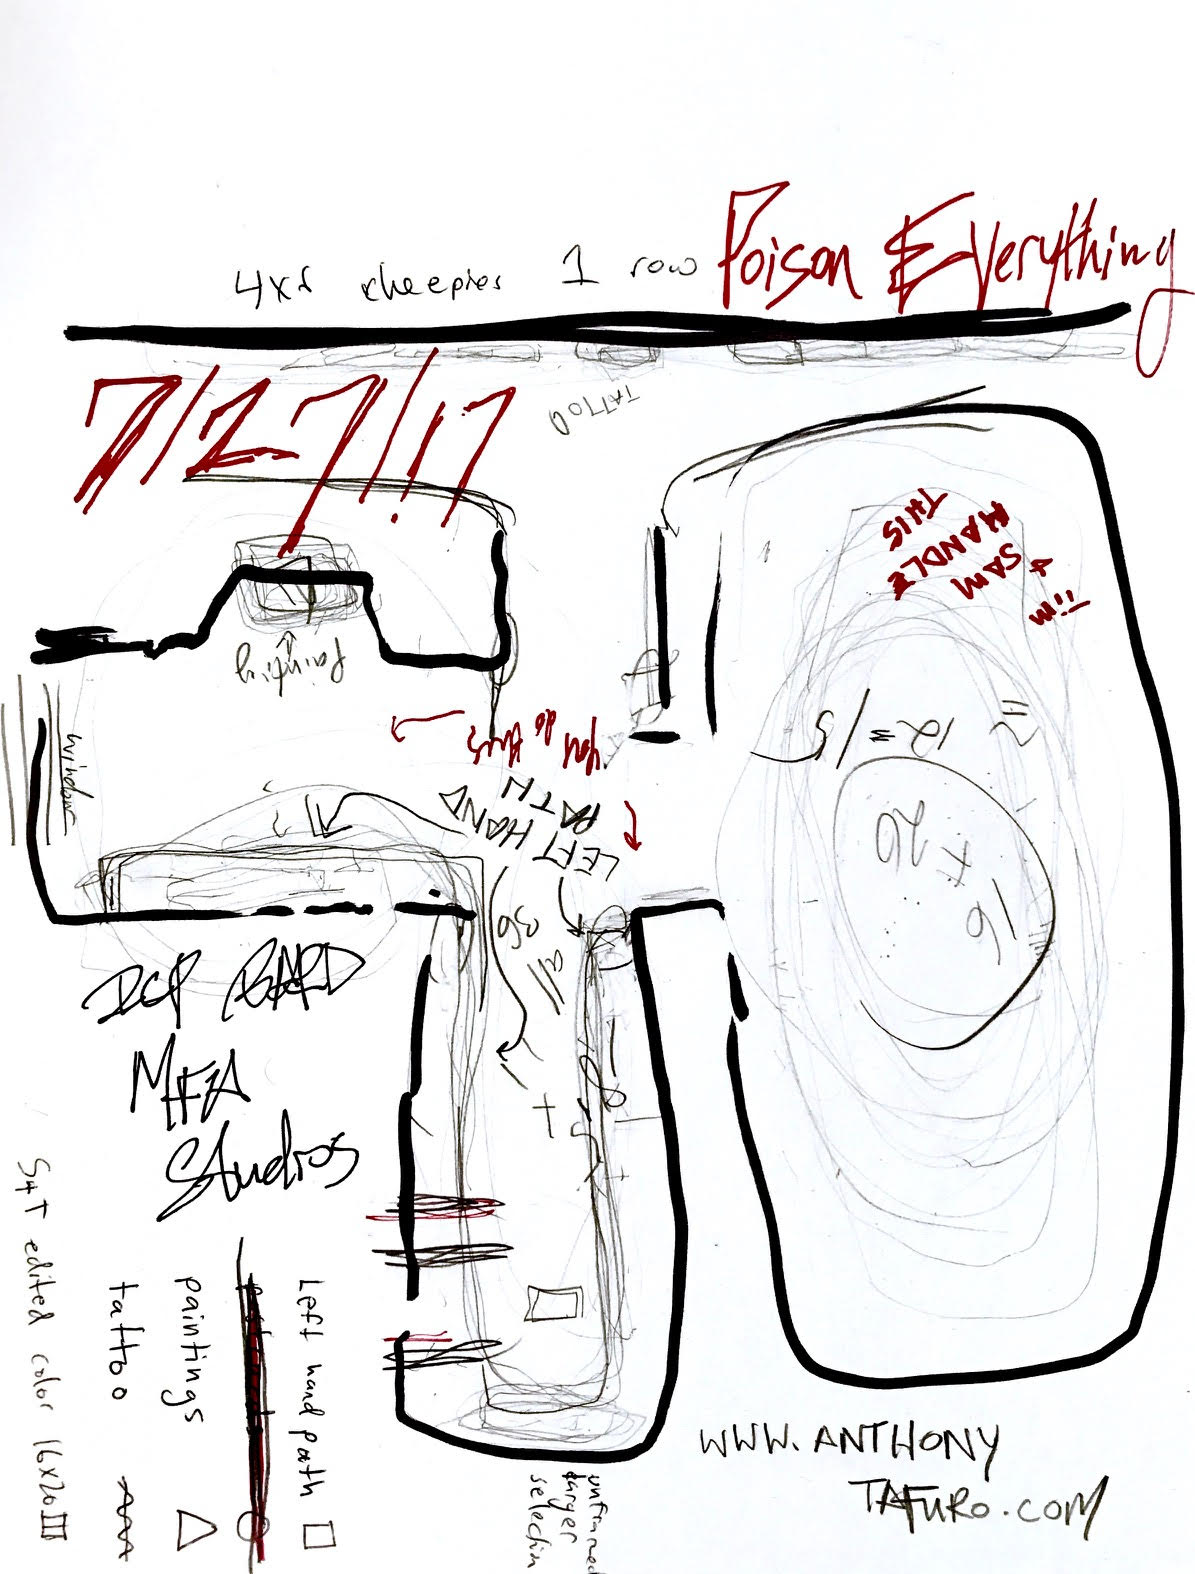 Poison Everything
1 row
7/27/17
TATTOO
THIS
HANDLE
SAM
+
Painting
window
you do this
LEFT HAND
PATH
?
12 =
16
+
20
36
all
BARD
MFA
Studios
Left hand path
paintings
tattoo
S+T edited color 16x20
unframed
larger
selection
WWW.ANTHONY
TAFURO.COM